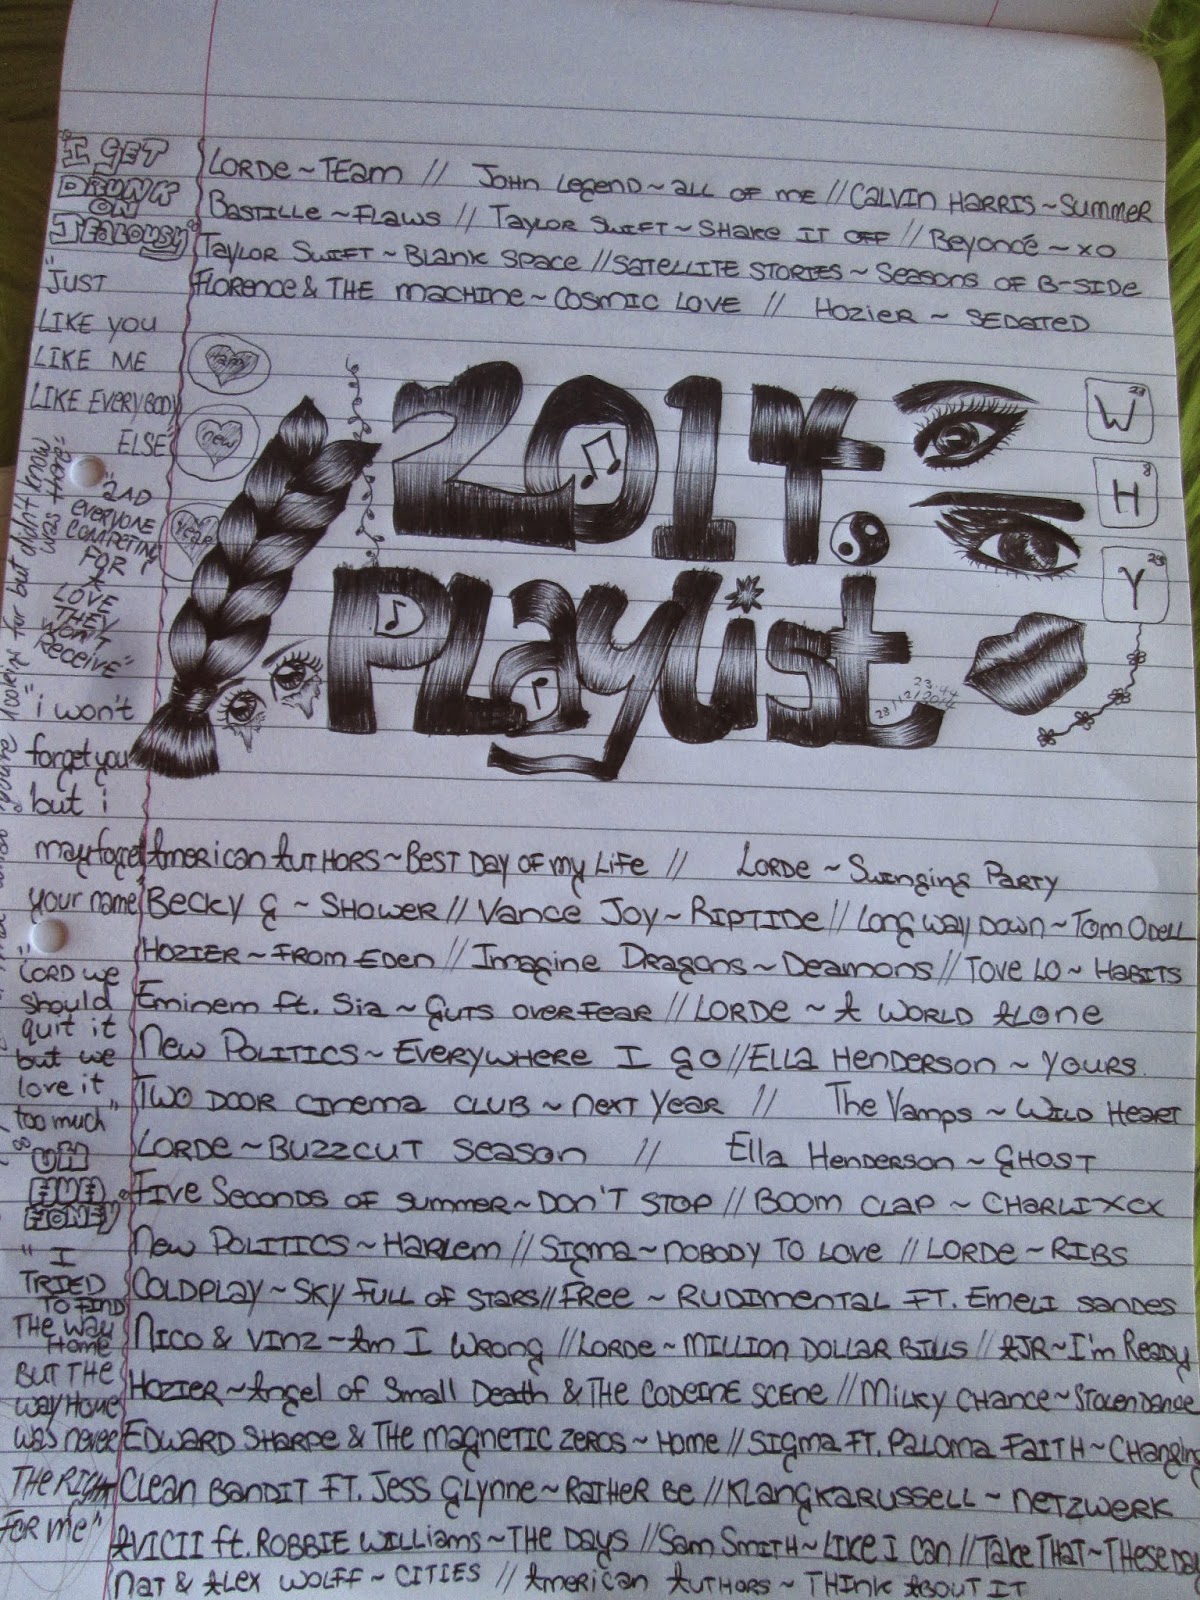 LORDE ~ TEAM // JOHN LEGEND ~ ALL OF ME // CALVIN HARRIS ~ SUMMER
BASTILLE ~ FLAWS // TAYLOR SWIFT ~ SHAKE IT OFF // BEYONCé ~ XO
TAYLOR SWIFT ~ BLANK SPACE // SATELLITE STORIES ~ SEASONS OF B-SIDE
FLORENCE & THE MACHINE ~ COSMIC LOVE // HOZIER ~ SEDATED
"I GET
DRUNK
ON
JEALOUSY"
"JUST
LIKE YOU
LIKE ME
LIKE EVERYBODY
ELSE"
Happy
new
year
"2AD
EVERYONE
COMPETING
FOR
A
LOVE
THEY
WON'T
RECEIVE"
looking for but didn't know
was there"
"i won't
forget you
but i
may forget
your name"
"LORD we
should
quit it
but we
love it
too much"
"I
TRIED
TO FIND
THE WAY
Home
BUT THE
way Home
was never
THE RIGHT
FOR me"
2014.
PLaylist
23:44
28/12/2014
W 23
H 8
Y
AMERICAN AUTHORS ~ BEST DAY OF MY LIFE // LORDE ~ SWINGING PARTY
BECKY G ~ SHOWER // VANCE JOY ~ RIPTIDE // LONG WAY DOWN ~ TOM ODELL
HOZIER ~ FROM EDEN // IMAGINE DRAGONS ~ DEAMONS // TOVE LO ~ HABITS
EMINEM ft. SIA ~ GUTS OVER FEAR // LORDE ~ A WORLD ALONE
NEW POLITICS ~ EVERYWHERE I GO // ELLA HENDERSON ~ YOURS.
TWO DOOR CINEMA CLUB ~ NEXT YEAR // The Vamps ~ WILD HEART
LORDE ~ BUZZCUT SEASON // ELLA HENDERSON ~ GHOST
FIVE SECONDS OF SUMMER ~ DON'T STOP // BOOM CLAP ~ CHARLI XCX
NEW POLITICS ~ HARLEM // SIGMA ~ NOBODY TO LOVE // LORDE ~ RIBS
COLDPLAY ~ SKY FULL OF STARS // FREE ~ RUDIMENTAL FT. EMELI SANDES
NICO & VINZ ~ AM I WRONG // LORDE ~ MILLION DOLLAR BILLS // AJR ~ I'm Ready
HOZIER ~ ANGEL OF SMALL DEATH & THE CODEINE SCENE // MILKY CHANCE ~ STOLEN DANCE
EDWARD SHARPE & THE MAGNETIC ZEROS ~ HOME // SIGMA FT. PALOMA FAITH ~ CHANGING
CLEAN BANDIT FT. JESS GLYNNE ~ RATHER BE // KLANGKARUSSELL ~ NETZWERK
AVICII ft. ROBBIE WILLIAMS ~ THE DAYS // SAM SMITH ~ LIKE I CAN // TAKE THAT ~ THESE DAY
NAT & ALEX WOLFF ~ CITIES // AMERICAN AUTHORS ~ THINK ABOUT IT